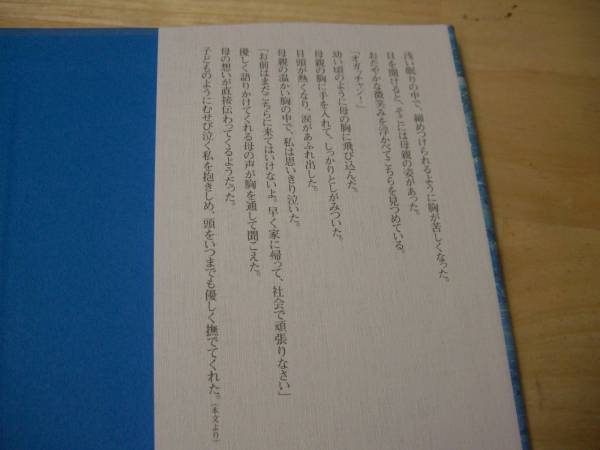 浅い眠りの中で、締めつけられるように胸が苦しくなった。
目を開けると、そこには母親の姿があった。
おだやかな微笑みを浮かべてこちらを見つめている。
「オガッチャン!」
幼い頃のように母の胸に飛び込んだ。
母親の胸に手を入れて、しっかりとしがみついた。
目頭が熱くなり、涙があふれ出した。
母親の温かい胸の中で、私は思いきり泣いた。
「お前はまだこちらに来てはいけないよ。早く家に帰って、社会で頑張りなさい」
優しく語りかけてくれる母の声が胸を通して聞こえた。
母の想いが直接伝わってくるようだった。
子どものようにむせび泣く私を抱きしめ、頭をいつまでも優しく撫でてくれた。(本文より)